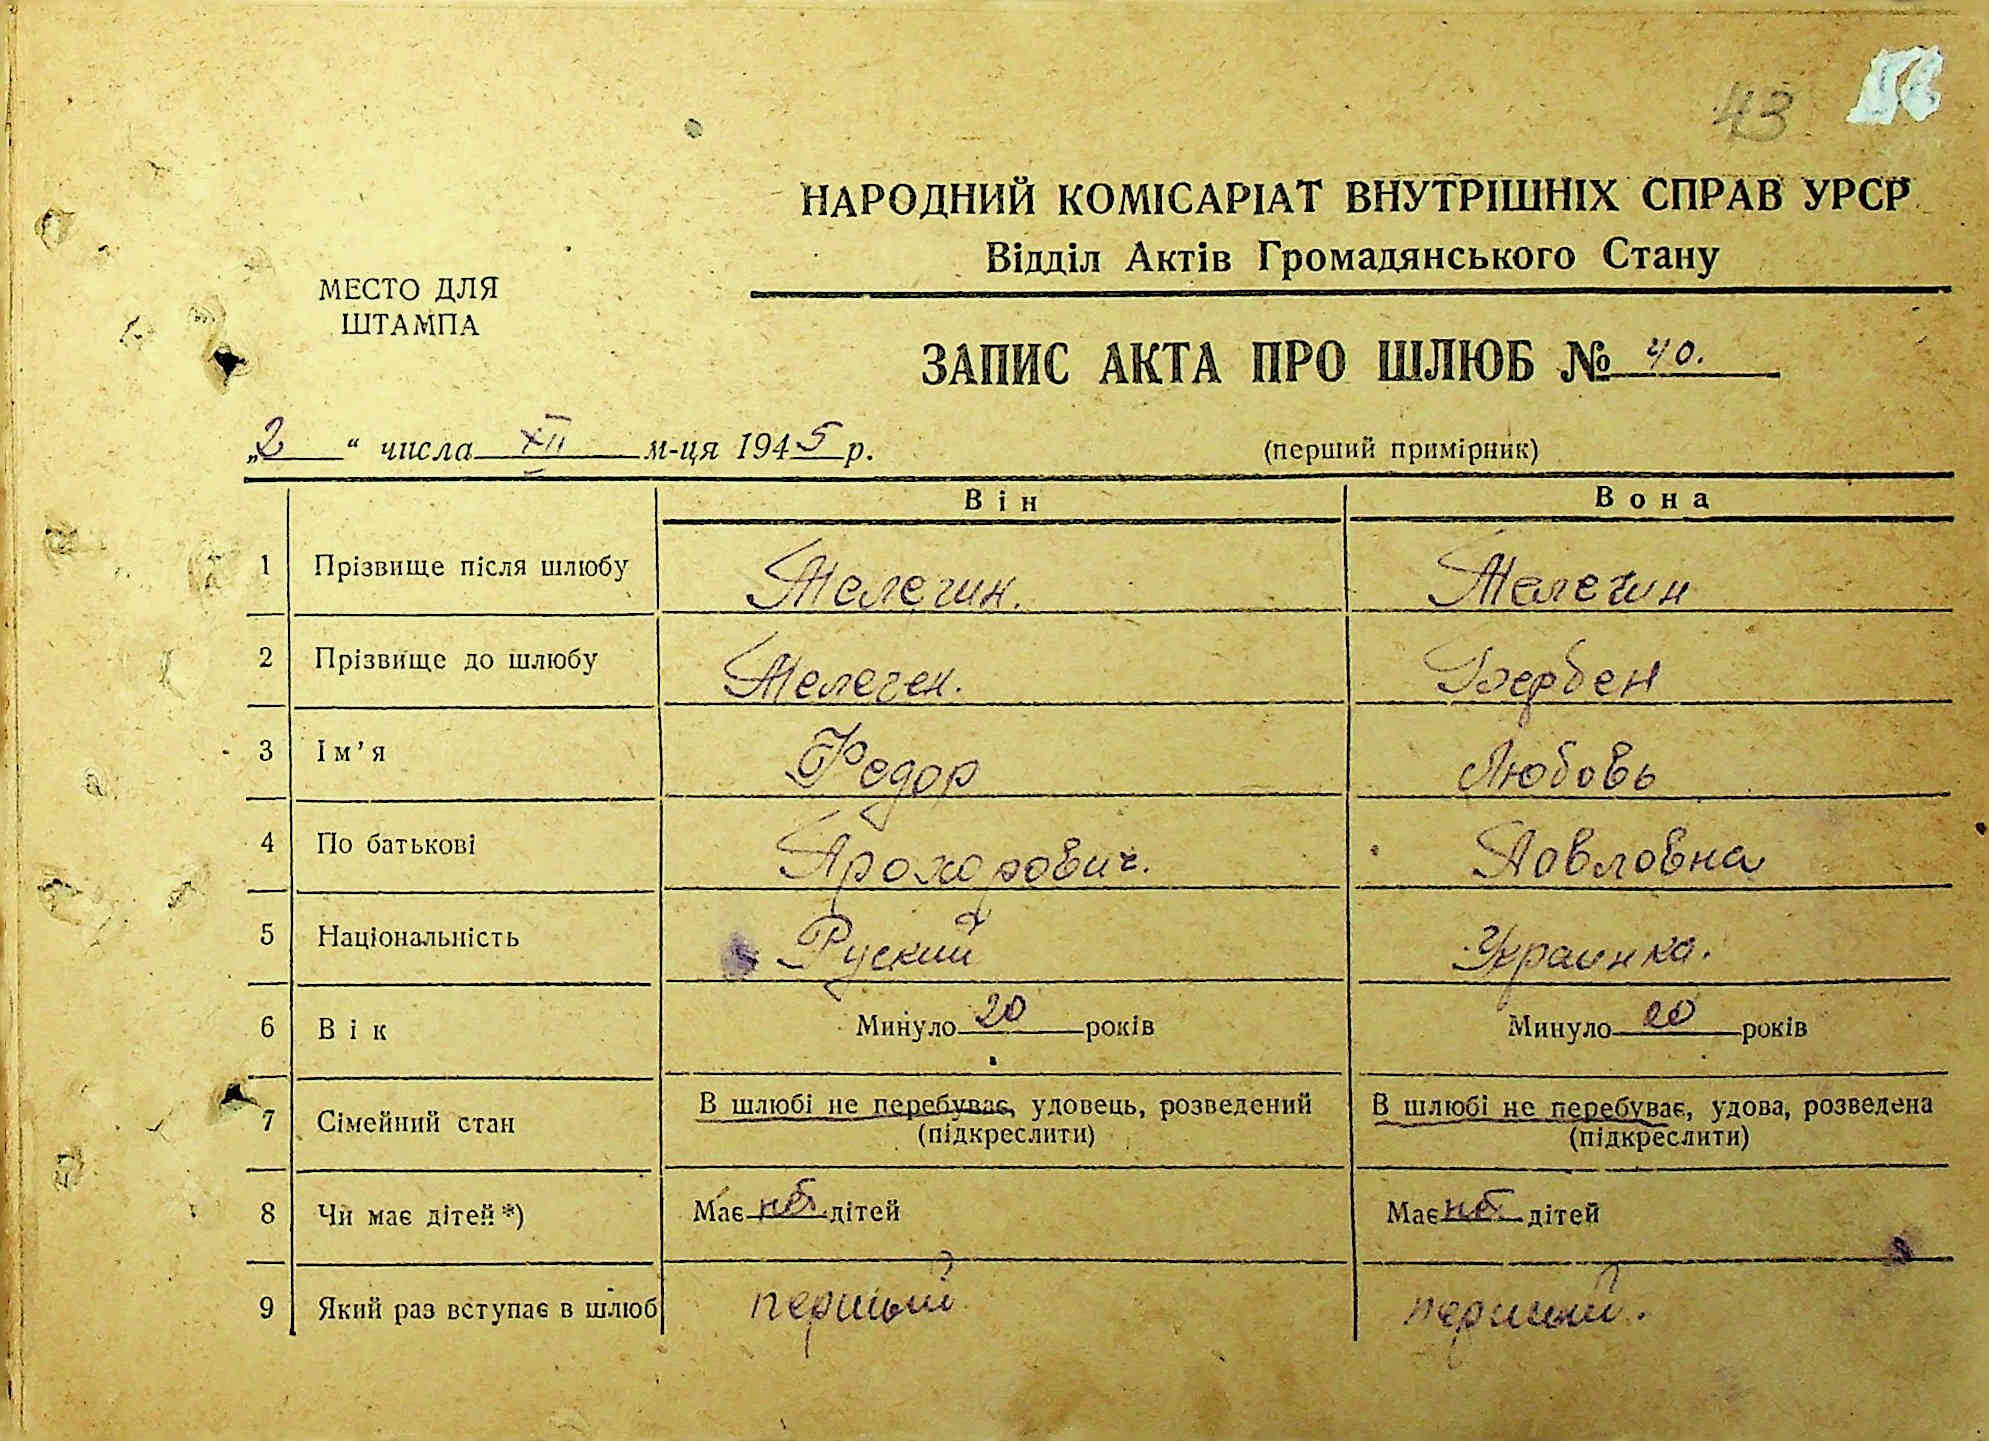 43
НАРОДНИЙ КОМІСАРІАТ ВНУТРІШНІХ СПРАВ УРСР
Відділ Актів Громадянського Стану
МЕСТО ДЛЯ
ШТАМПА
ЗАПИС АКТА ПРО ШЛЮБ № 40.
„2“ числа XII м-ця 1945 р.
(перший примірник)
Він Вона
1 Прізвище після шлюбу Телегин. Телегин
2 Прізвище до шлюбу Телеген. Дербен
3 Ім'я Федор Любовь
4 По батькові Прохорович. Повловна
5 Національність Руский Украинка.
6 Вік Минуло 20 років Минуло 20 років
7 Сімейний стан В шлюбі не перебуває, удовець, розведений В шлюбі не перебуває, удова, розведена
(підкреслити) (підкреслити)
8 Чи має дітей*) Має нет дітей Має нет дітей
9 Який раз вступає в шлюб первый первый.